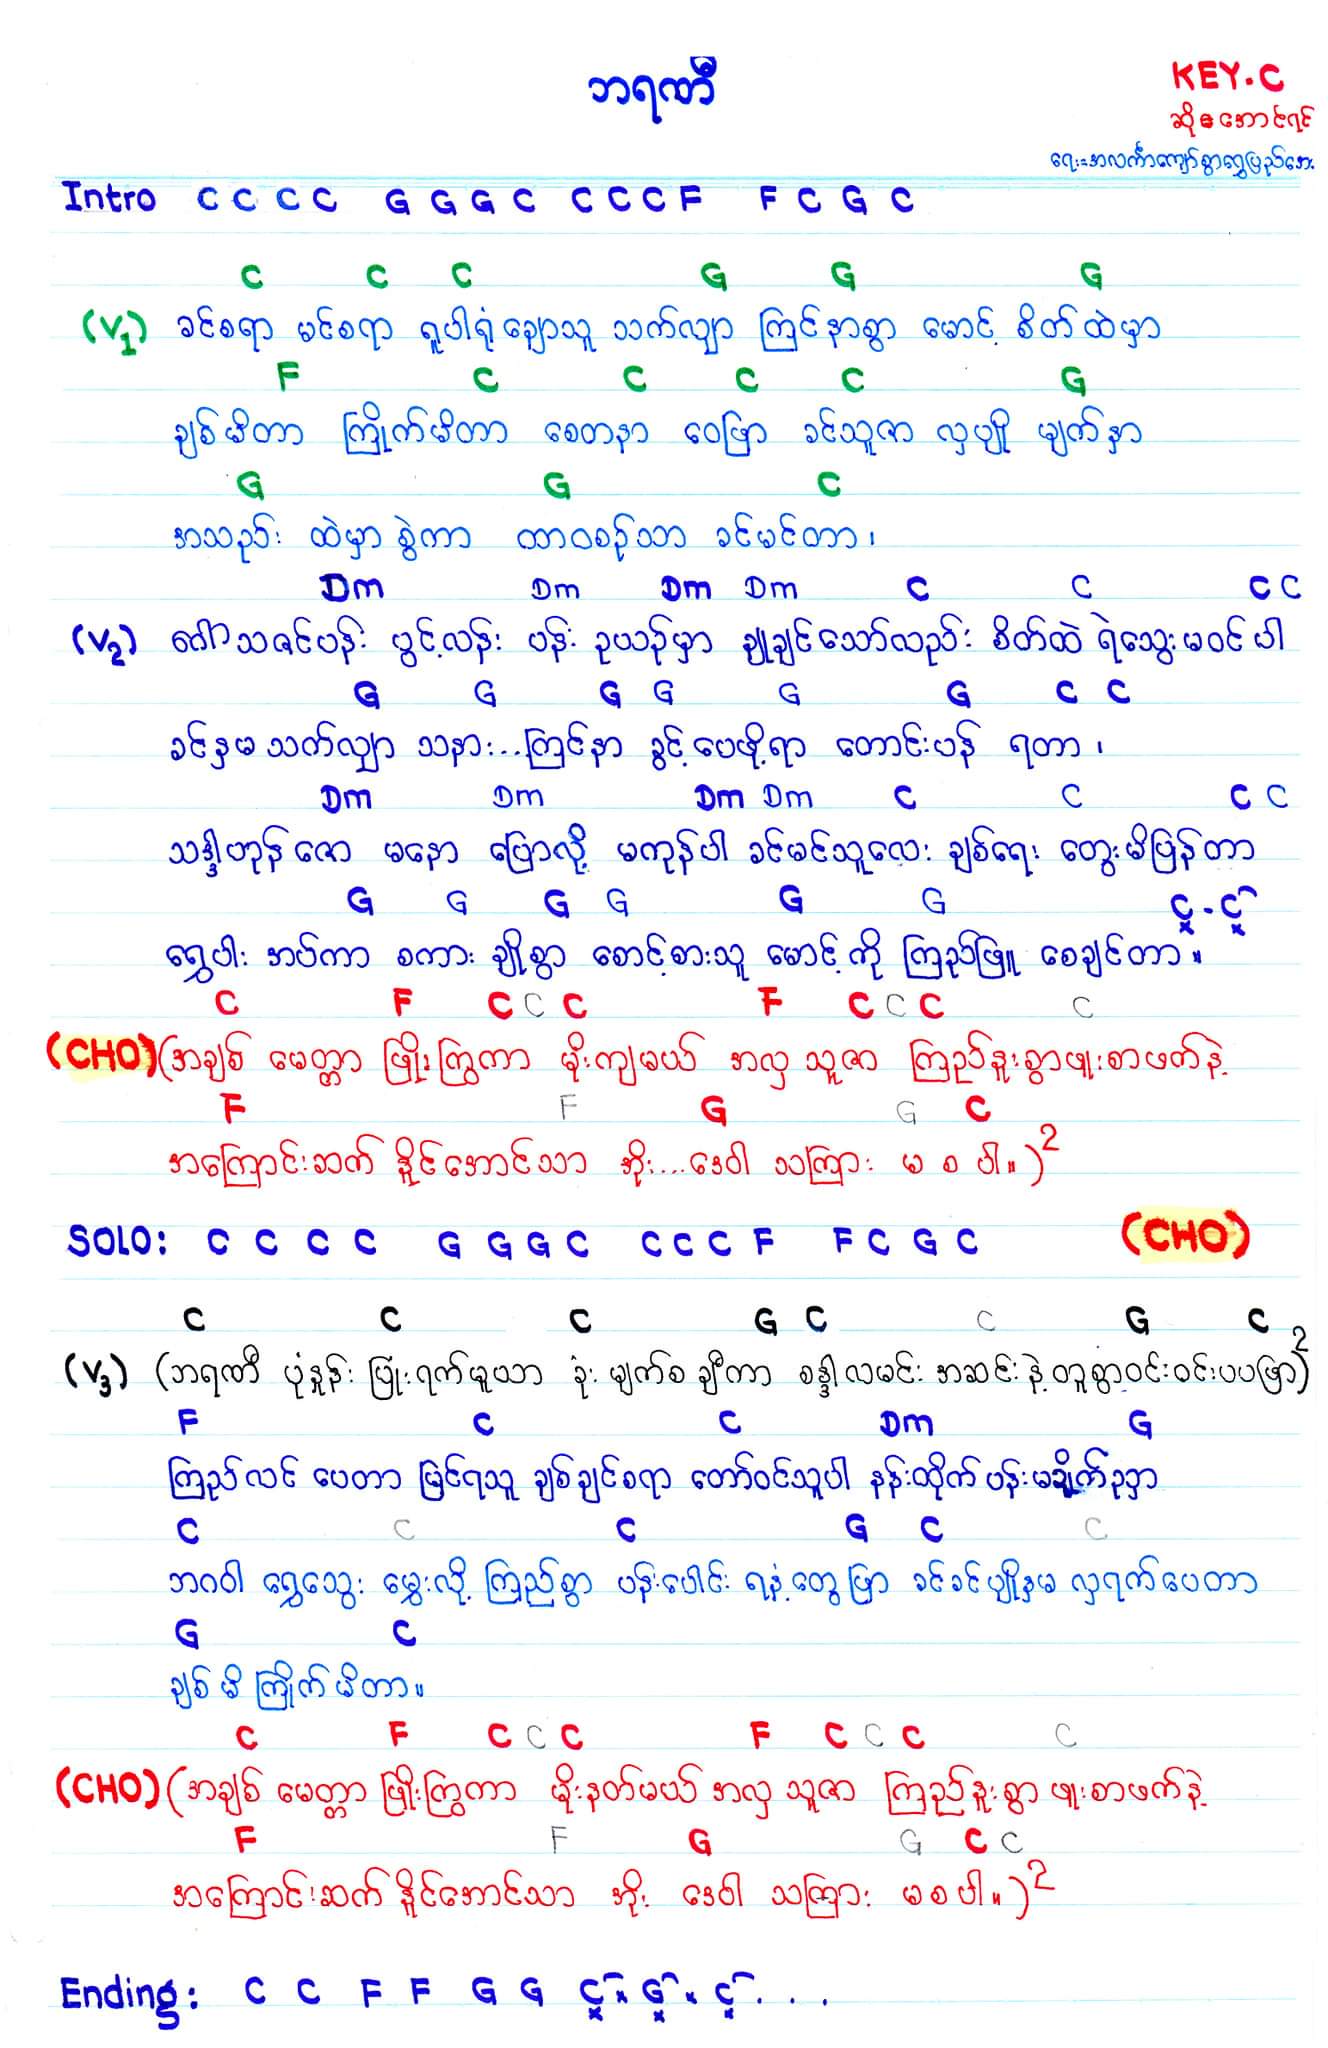 ဘရဏီ
KEY.C
ဆို = အောင်ရင်
ရေး = အလင်္ကာကျော်စွာရွှေပြည်အေး
Intro C C C C G G G C C C C F F C G C
C C C G G G
(V1) ခင်စရာ မင်စရာ ရူပါရုံ ချောသူ သက်လျှာ ကြင်နာစွာ မောင့် စိတ်ထဲမှာ
F C C C C G
ချစ်မိတာ ကြိုက်မိတာ စေတနာ ဝေဖြာ ခင်သူဇာ လှပျို မျက်နှာ
G G C
အသည်း ထဲမှာ စွဲကာ ထာဝစဉ်သာ ခင်မင်တာ၊
Dm Dm Dm Dm C C C C
(V2) ဂေါ်သဇင်ပန်း ပွင့်လန်း ပန်း ဥယျာဉ်မှာ ချူချင်သော်လည်း စိတ်ထဲ ရဲသွေးမဝင်ပါ
G G G G G G C C
ခင်နှမ သက်လျှာ သနား... ကြင်နာ ခွင့်ပေဖို့ရာ တောင်းပန် ရတာ၊
Dm Dm Dm Dm C C C C
သဒ္ဒါဟုန်ဇော မနော ပြောလို့ မကုန်ပါ ခင်မင်သူလေး ချစ်ရေး တွေးမိပြန်တာ
G G G G G G C . C
ရွှေပါး အပ်ကာ စကား ချိုစွာ စောင့်စားသူ မောင့်ကို ကြည်ဖြူ စေချင်တာ။
C F C C C F C C C C
(CHO) (အချစ် မေတ္တာ ဖြိုးကြွကာ မိုးကျမယ် အလှ သူဇာ ကြည်နူးစွာဖူးစာဖက်နဲ့
F F G G C
အကြောင်းဆက် နိူင်အောင်သာ အိုး... ဒေဝါ သကြား မ စ ပါ။)2
SOLO: C C C C G G G C C C C F F C G C (CHO)
C C C G C C G C
(V3) (ဘရဏီ ပုံနှုန်း ပြုံးရက်မူယာ ခုံး မျက်စ ချီကာ စန္ဒါလမင်း အဆင်းနဲ့ တူစွာဝင်းဝင်းပပဖြာ)2
F C C Dm G
ကြည်လင် ပေတာ မြင်ရသူ ချစ်ချင်စရာ တော်ဝင်သူပါ နန်းထိုက်ပန်းမချိုက်ဥမှာ
C C C G C C
ဘဂဝါ ရွှေသွေး မွှေးလို့ ကြည်စွာ ပန်းပေါင်း ရနံ့တွေ ဖြာ ခင်ခင်ပျိုနှမ လှရက်ပေတာ
G C
ချစ်မိ ကြိုက်မိတာ။
C F C C C F C C C C
(CHO) (အချစ် မေတ္တာ ဖြိုးကြွကာ မိုးနတ်မယ် အလှ သူဇာ ကြည်နူးစွာ ဖူးစာဖက်နဲ့
F F G G C C
အကြောင်းဆက် နိူင်အောင်သာ အိုး ဒေဝါ သကြား မ စ ပါ။)2
Ending: C C F F G G C G C . . .